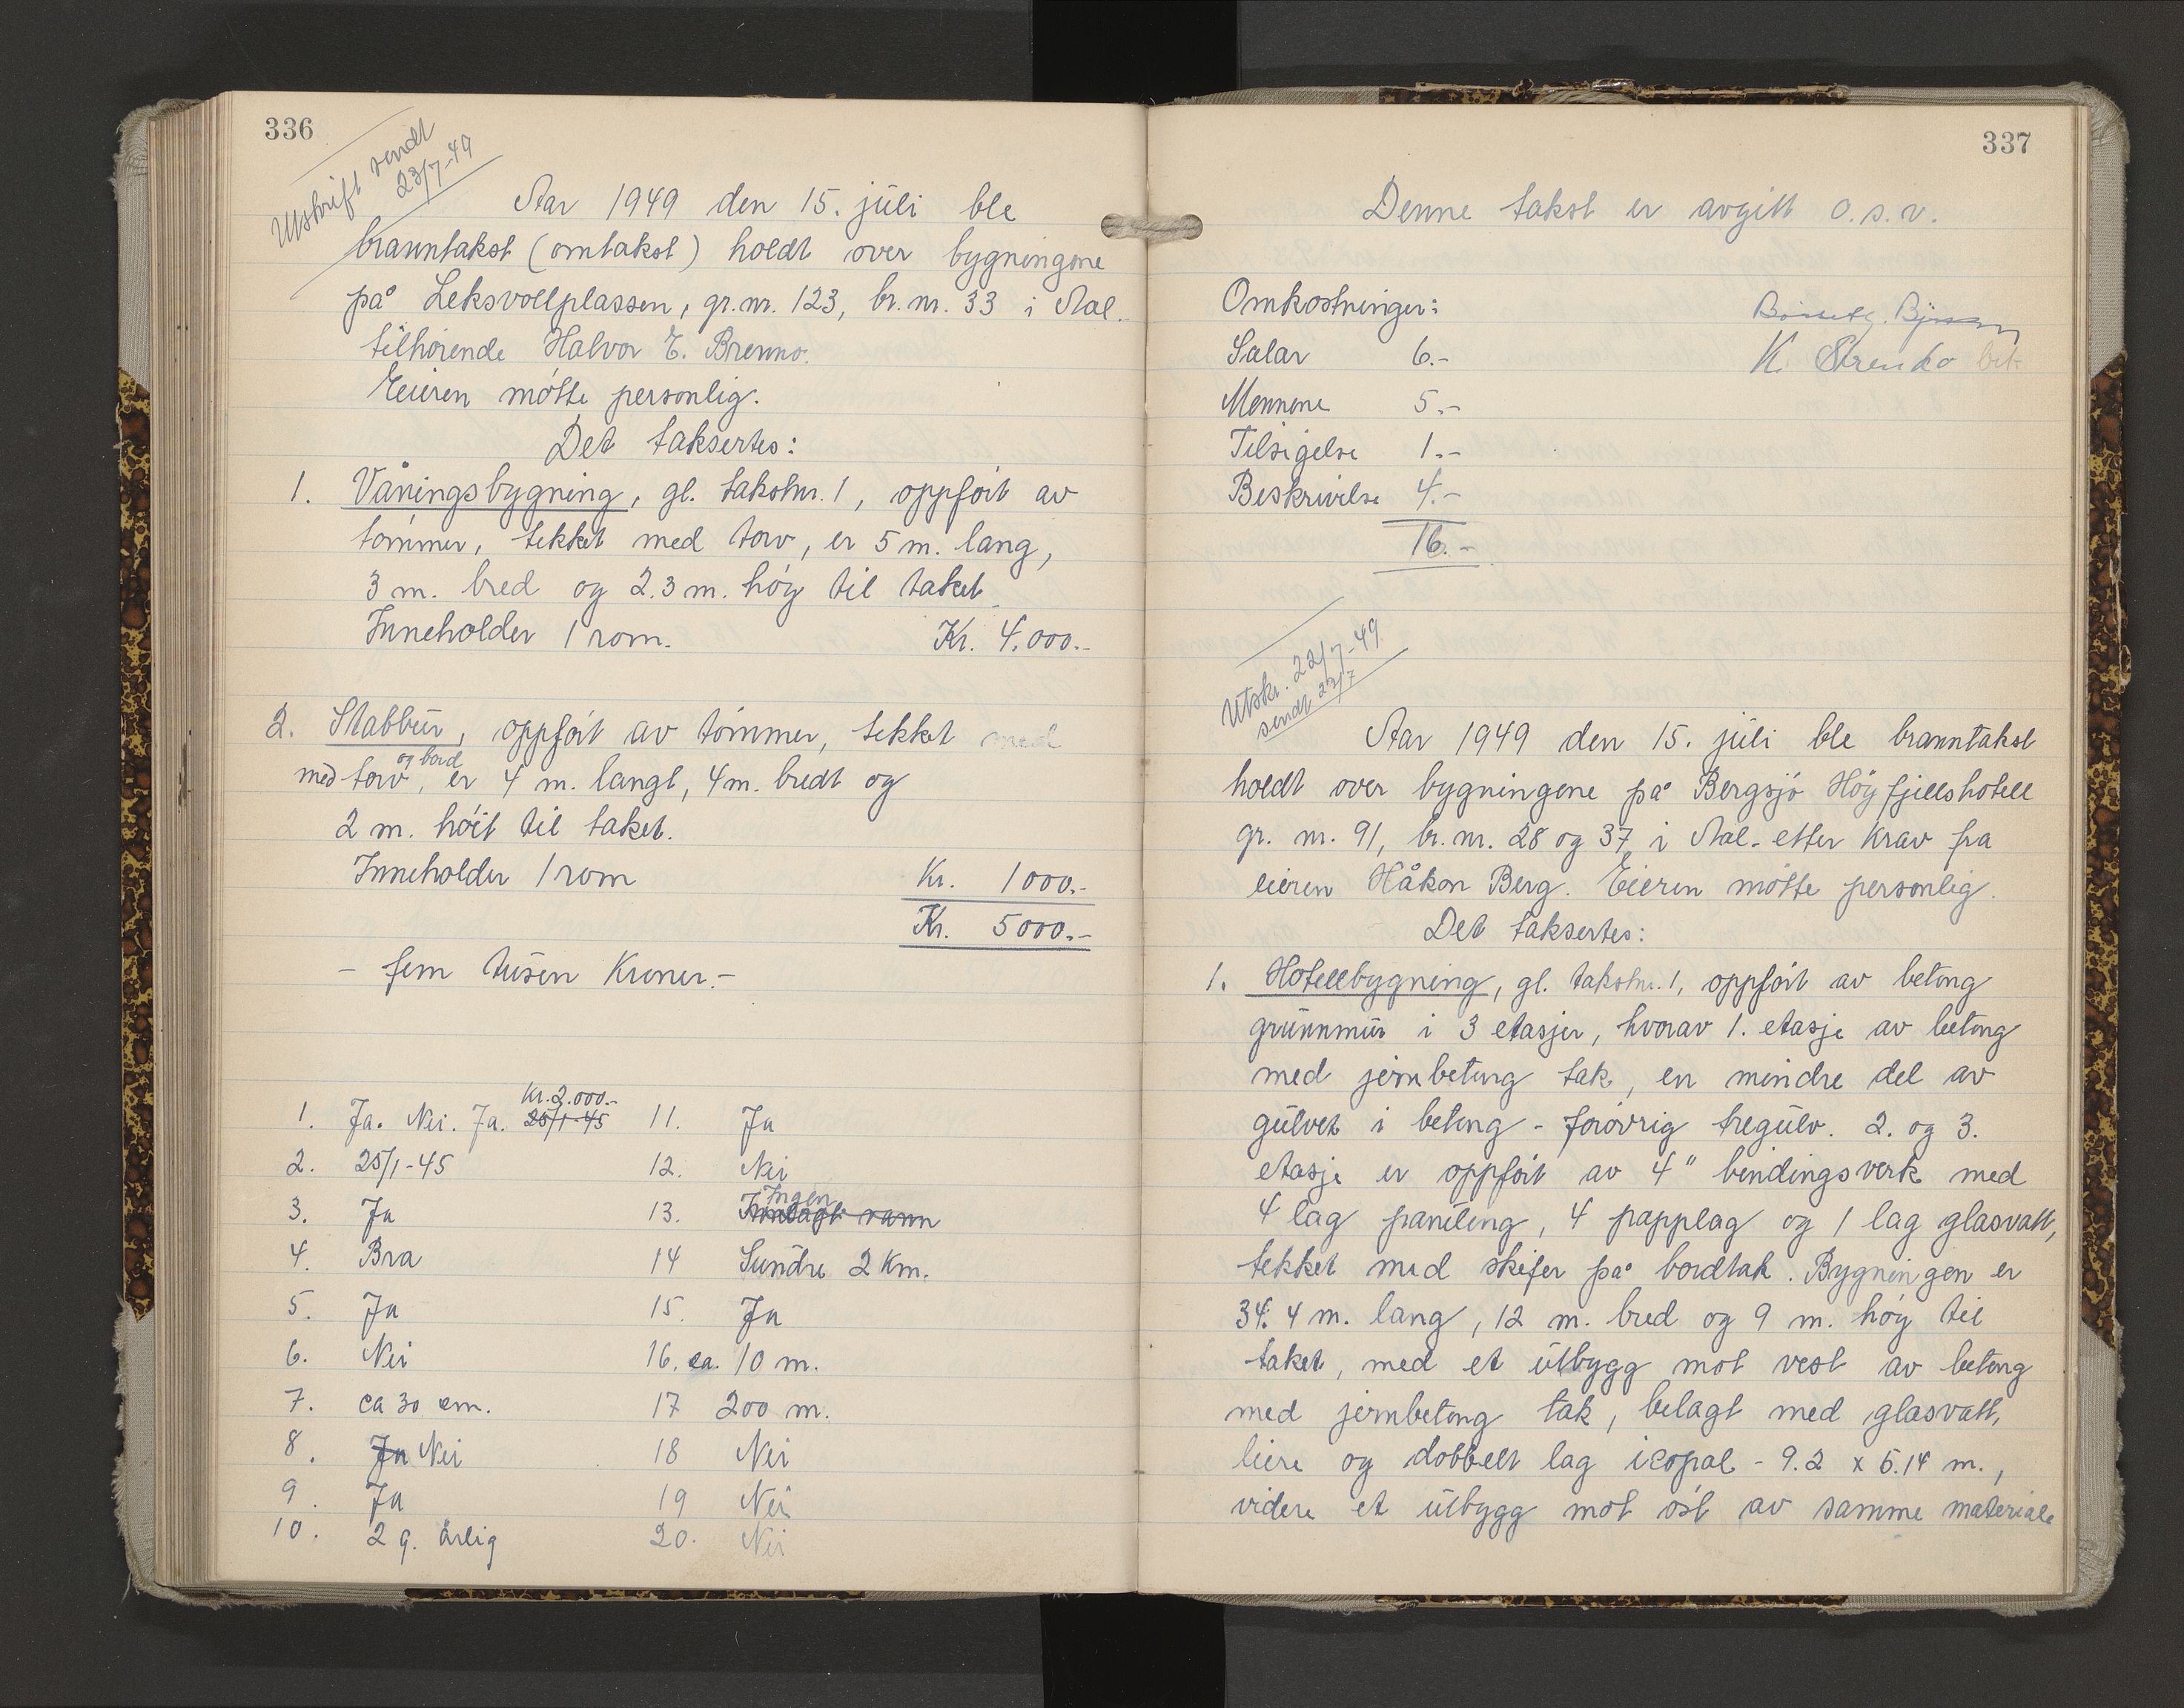 336
Utskrift sendt
23/7-49
Aar 1949 den 15. juli ble
branntakst (omtakst) holdt over bygningene
på Leksvollplassen, gr.nr. 123, br.nr. 33 i Aal.
tilhørende Halvor E. Brenno.
Eieren møtte personlig.
Det taksertes:
1. Våningsbygning, gl. takstnr. 1, oppført av
tømmer, tekket med torv, er 5 m. lang,
3 m. bred og 2.3 m. høg til taket
Inneholder 1 rom. Kr. 4.000.-
2. Stabbur, oppført av tømmer, tekket med
og bord
med torv, er 4 m. langt, 4 m. bredt og
2 m. høit til taket.
Inneholder 1 rom Kr. 1000.-
Kr. 5000.-
- fem tusen kroner.-
Kr. 2.000.-
1. Ja. Nei. Ja. 25/1-45 11. Ja
2. 25/1-45 12. Nei
Ingen
3. Ja 13. Innlagt vann
4. Bra 14 Sundre 2 Km.
5. Ja 15. Ja
6. Nei 16. ca. 10 m.
7. ca 30 cm. 17 200 m.
8. Ja Nei 18 Nei
9. Ja 19 Nei
10. 2 g. årlig 20. Nei
337
Denne takst er avgitt o.s.v.
Omkostninger:
Salar 6.-
K.
Mennene 5.-
Tilsigelse 1.-
Beskrivelse 4.-
16.-
Utskr. 22/7-49
sendt 22/7
Aar 1949 den 15. juli ble branntakst
holdt over bygningene på Bergsjø Høyfjellshotell
gr. nr. 91, br. nr. 28 og 37 i Aal - etter krav fra
eieren Håkon Berg. Eieren møtte personlig.
Det taksertes:
1. Hotellbygning, gl. takstnr. 1, oppført av betong
grunnmur i 3 etasjer, hvorav 1. etasje av betong
med jernbetong tak, en mindre del av
gulvet i betong - forøvrig tregulv. 2. og 3.
etasje er oppført av 4" bindingsverk med
4 lag paneling, 4 papplag og 1 lag glasvatt,
tekket med skifer på bordtak. Bygningen er
34.4 m. lang, 12 m. bred og 9 m. høg til
taket, med et utbygg mot vest av betong
med jernbetong tak, belagt med glasvatt,
leire og dobbelt lag icopal - 9.2 x 5.14 m.,
videre et utbygg mot øst av samme materiale